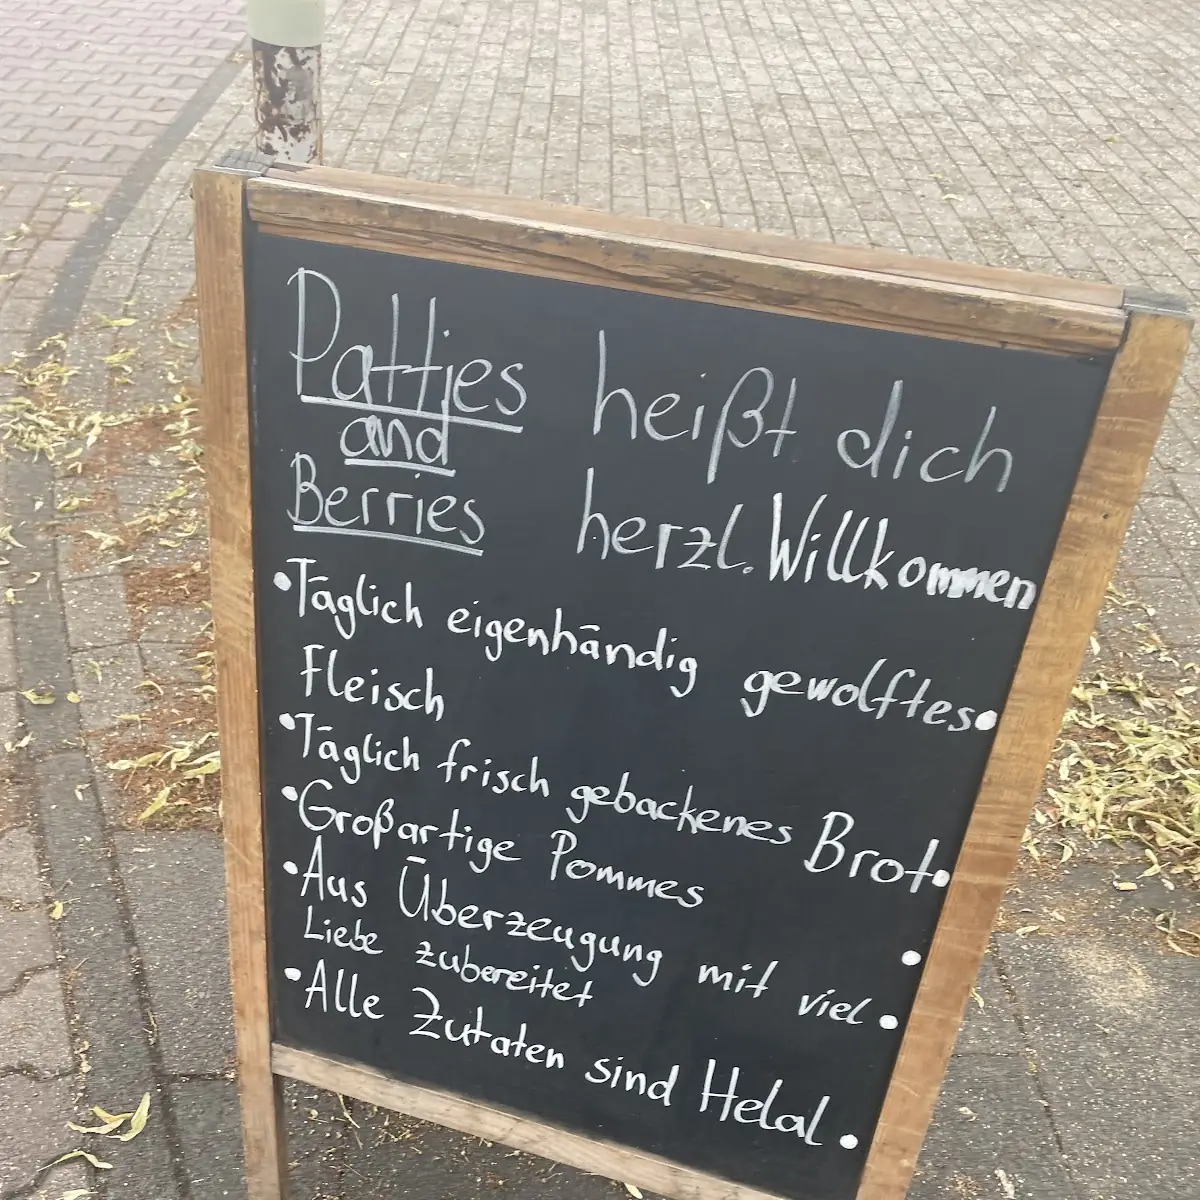 Pattjes heißt dich
and
Berries herzl. Willkommen
• Täglich eigenhändig gewolftes •
Fleisch
• Täglich frisch gebackenes Brot •
• Großartige Pommes •
• Aus Überzeugung mit viel •
Liebe zubereitet
• Alle Zutaten sind Helal •